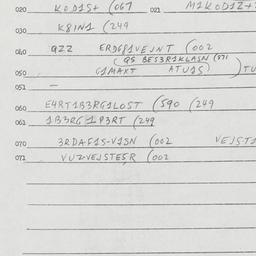 020 KODIS+ (067 021 M1KOD1Z+
030 K8IN1 (249
040 922 ER3GP1VEJNT (002
(95 BES3R1KLASN (871
050 G1MAXT ATU1S) TU
051 —
060 E4RT1B3RG1LOST (590 (249
061 1B3RG1P3RT (249
070 3RDAF1S-V1SN (002 VEJST1
071 VUZVEJSTE5R (002